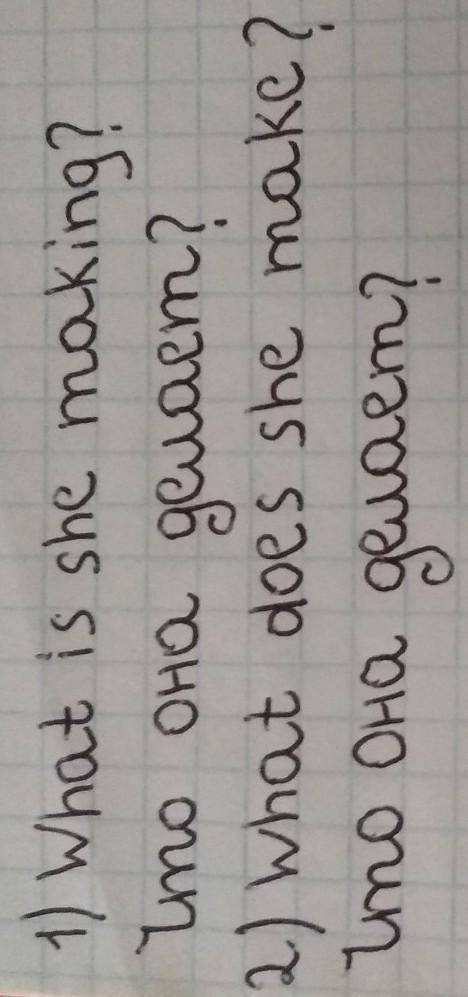 1) What is she making?
Что она делает?
2) What does she make?
Что она делает?